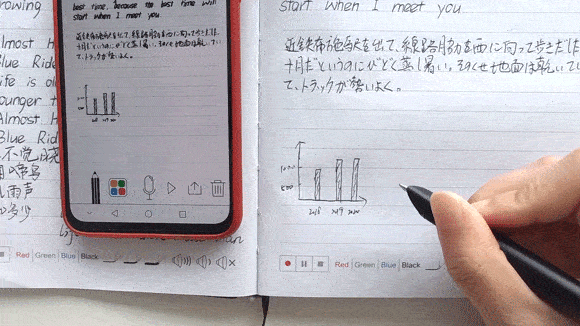 rowing
Almost H
Blue Rid
ife is ol
ounger t
Almost H
Blue Rid
不觉晓
雨声
best time, because the last time will
start when I meet you
近鉄布施駅を出て、線路脇を西に向って歩きだした
十月だというのにひどく蒸し暑い。そのくせ地面は乾いてい
て、トラックが勢いよく。
2018 2019 2020
Red Green Blue Black
start when I meet you
近鉄布施駅を出て、線路脇を西に向って歩きだした
十月だというのにひどく蒸し暑い。そのくせ地面は乾いてい
て、トラックが勢いよく。
1000
500
2018 2019 2020
Red Green Blue Black